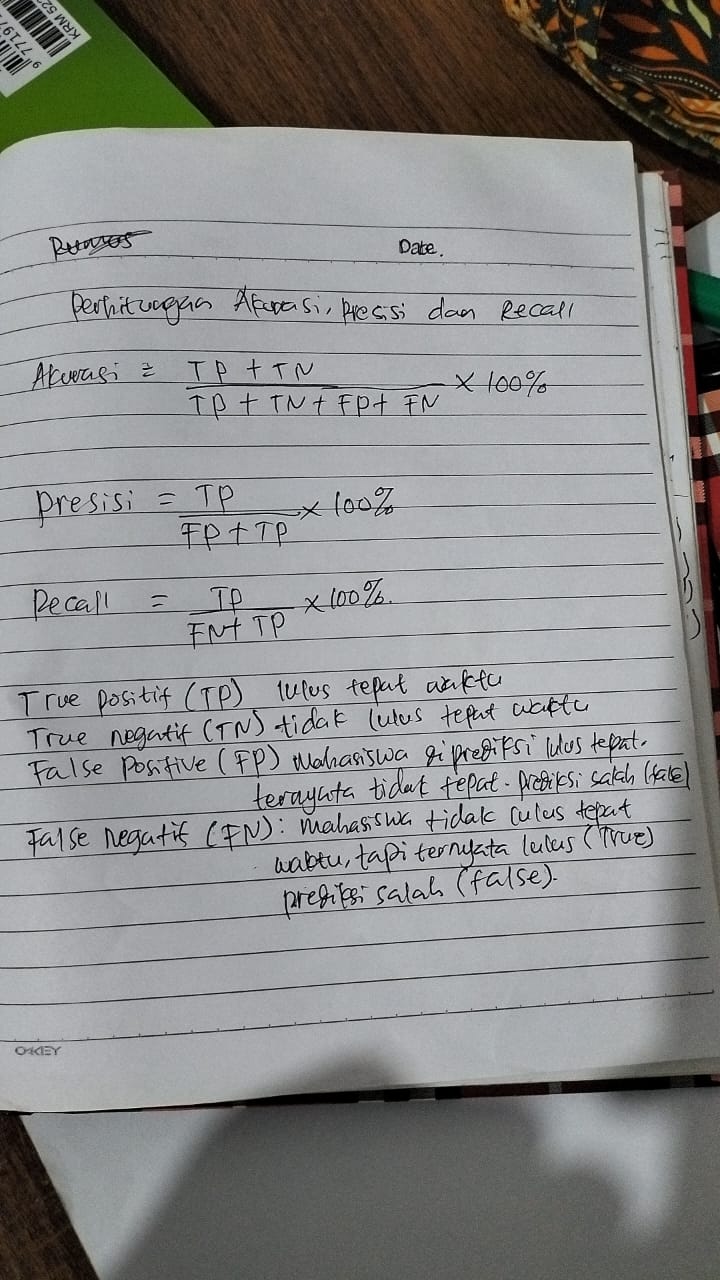 KRM 52
9 77197
Rumos
Date.
Perhitungan Akurasi, Presisi dan Recall
Akurasi = TP + TN / TP + TN + FP + FN × 100%
Presisi = TP / FP + TP × 100%
Recall = TP / FN + TP × 100%.
True positif (TP) lulus tepat waktu
True negatif (TN) tidak lulus tepat waktu
False Positive (FP) Mahasiswa diprediksi lulus tepat.
terayata tidak tepat. prediksi salah (false)
False negatif (FN): mahasiswa tidak lulus tepat
waktu, tapi ternyata lulus (True)
prediksi salah (false).
OAKEY